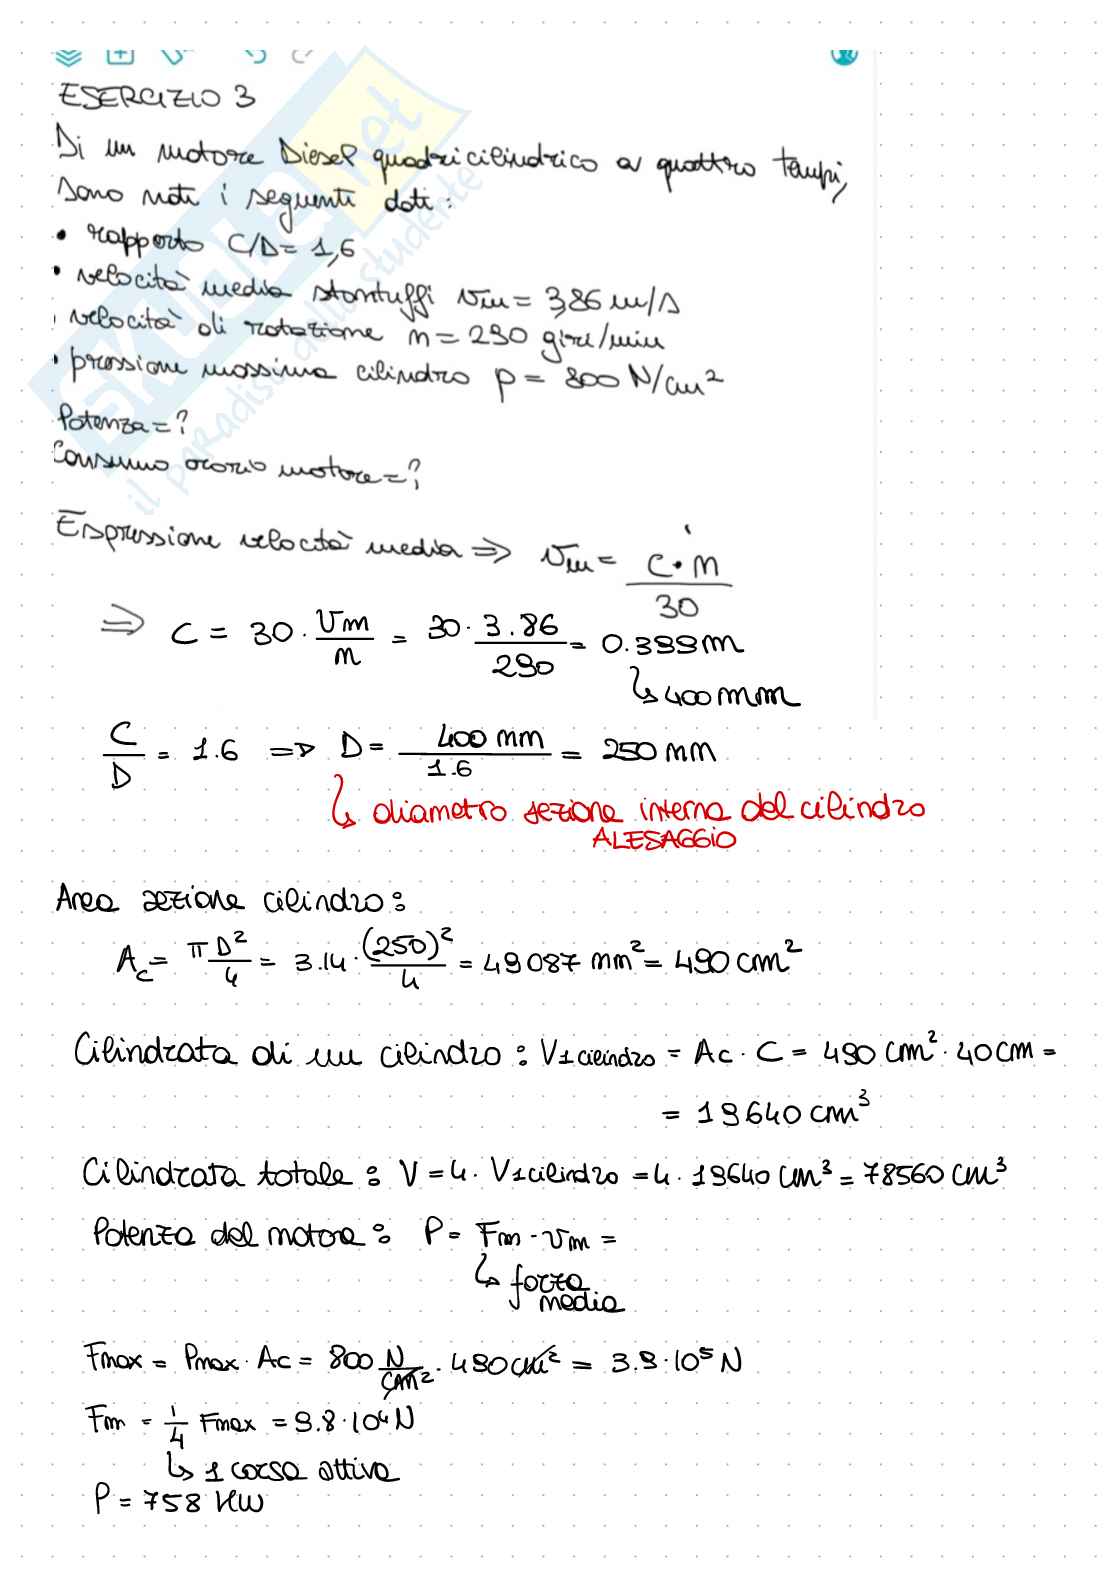 ESERCIZIO 3
Di un motore Diesel quadricilindrico a quattro tempi,
sono noti i seguenti dati:
• rapporto C/D= 1,6
• velocità media stantuffi vm = 3,86 m/s
• velocità di rotazione n = 290 giri/min
• pressione massima cilindro p = 800 N/cm²
Potenza = ?
Consumo orario motore = ?
Espressione velocità media ⇒ vm = C·n / 30
⇒ C = 30 · vm/n = 30 · 3.86/290 = 0.399 m
↳ 400 mm
C/D = 1.6 ⇒ D = 400 mm / 1.6 = 250 mm
↳ diametro sezione interna del cilindro
ALESAGGIO
Area sezione cilindro:
Ac = πD²/4 = 3.14 · (250)²/4 = 49087 mm² = 490 cm²
Cilindrata di un cilindro: V1cilindro = Ac · C = 490 cm² · 40 cm =
= 19640 cm³
Cilindrata totale: V = 4 · V1cilindro = 4 · 19640 cm³ = 78560 cm³
Potenza del motore: P = Fm · vm =
↳ forza
media
Fmax = Pmax · Ac = 800 N/cm² · 490 cm² = 3.9 · 10⁵ N
Fm = 1/4 Fmax = 9.8 · 10⁴ N
↳ 1 corsa attiva
P = 758 KW
SKUOLA.net
il paradiso dello studente